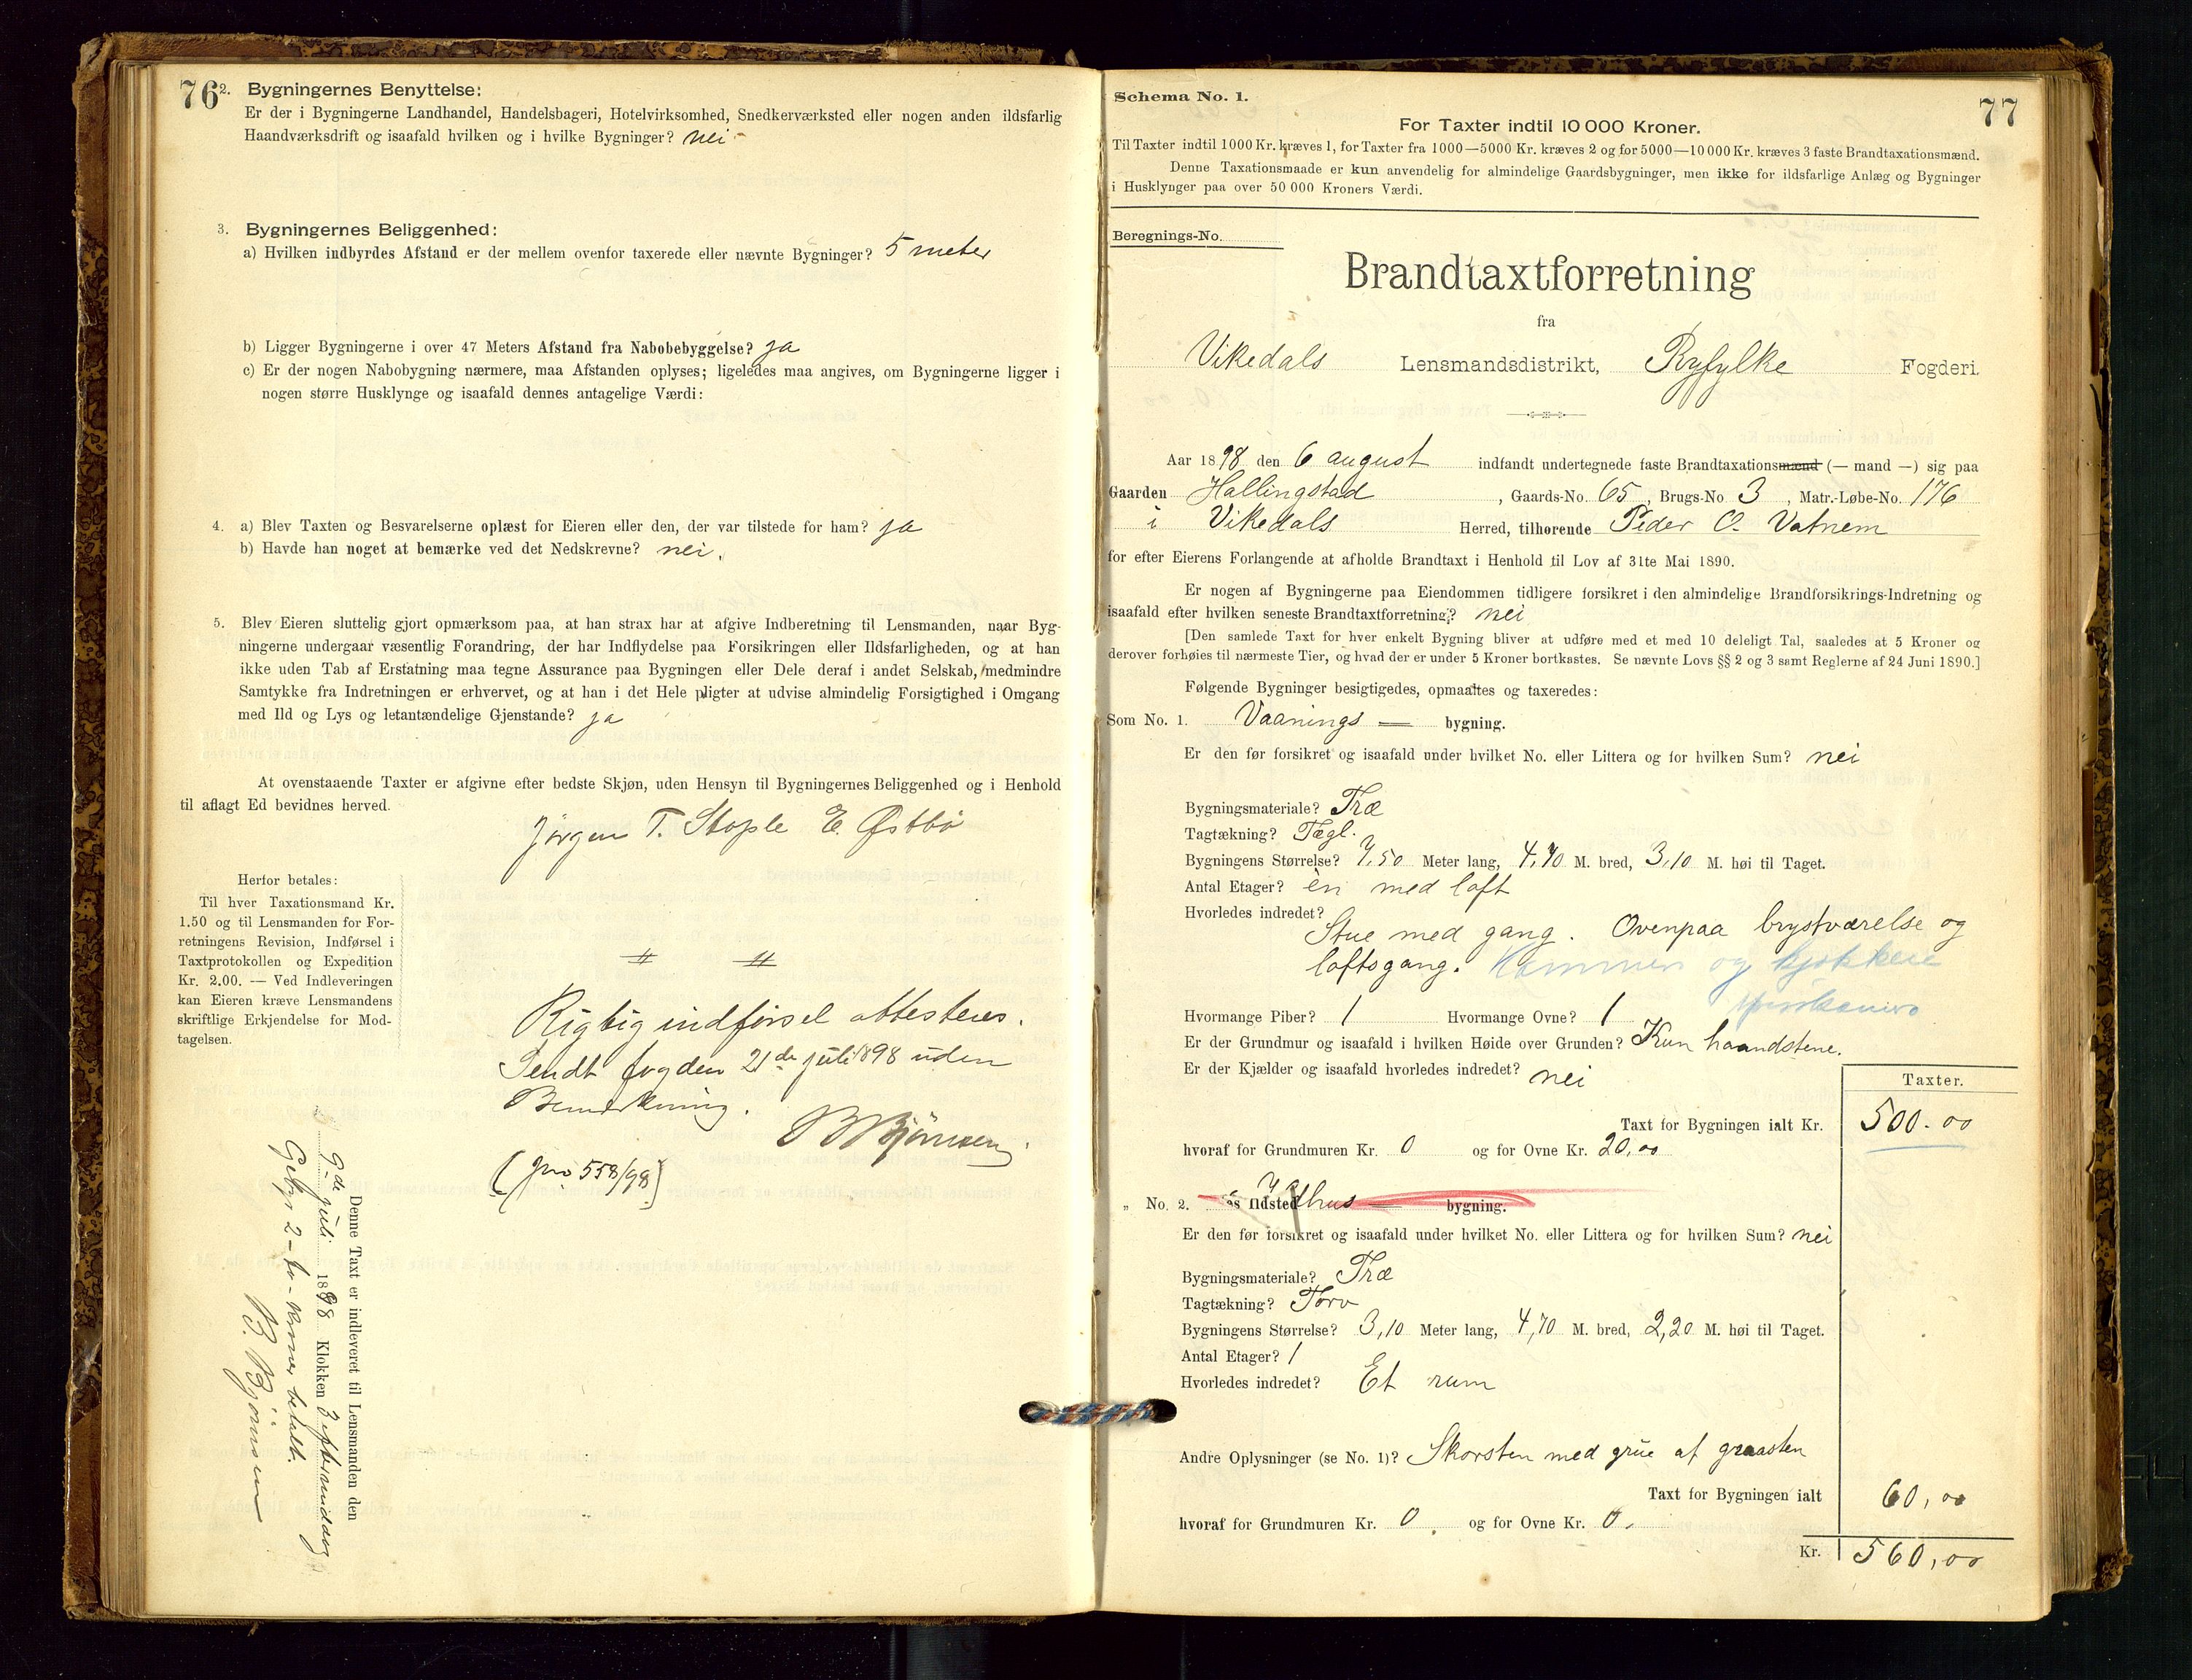 76
2. Bygningernes Benyttelse:
Er der i Bygningerne Landhandel, Handelsbageri, Hotelvirksomhed, Snedkerværksted eller nogen anden ildsfarlig
Haandværksdrift og isaafald hvilken og i hvilke Bygninger? nei
3. Bygningernes Beliggenhed:
a) Hvilken indbyrdes Afstand er der mellem ovenfor taxerede eller nævnte Bygninger? 5 meter
b) Ligger Bygningerne i over 47 Meters Afstand fra Nabobebyggelse? ja
c) Er der nogen Nabobygning nærmere, maa Afstanden oplyses; ligeledes maa angives, om Bygningerne ligger i
nogen større Husklynge og isaafald dennes antagelige Værdi:
4. a) Blev Taxten og Besvarelserne oplæst for Eieren eller den, der var tilstede for ham? ja
b) Havde han noget at bemærke ved det Nedskrevne? nei.
5. Blev Eieren sluttelig gjort opmærksom paa, at han strax har at afgive Indberetning til Lensmanden, naar Byg-
ningerne undergaar væsentlig Forandring, der har Indflydelse paa Forsikringen eller Ildsfarligheden, og at han
ikke uden Tab af Erstatning maa tegne Assurance paa Bygningen eller Dele deraf i andet Selskab, medmindre
Samtykke fra Indretningen er erhvervet, og at han i det Hele pligter at udvise almindelig Forsigtighed i Omgang
med Ild og Lys og letantændelige Gjenstande? ja
At ovenstaaende Taxter er afgivne efter bedste Skjøn, uden Hensyn til Bygningernes Beliggenhed og i Henhold
til aflagt Ed bevidnes herved.
Jørgen T. Stople E. Østbö
Herfor betales:
Til hver Taxationsmand Kr.
1.50 og til Lensmanden for For-
retningens Revision, Indførsel i
Taxtprotokollen og Expedition
Kr. 2.00. — Ved Indleveringen
kan Eieren kræve Lensmandens
skriftlige Erkjendelse for Mod-
tagelsen.
Rigtig indførsel attesteres.
Sendt fogden 21de juli 1898 uden
Bemerkning.
B Bjørnsen.
(Jno 558/98)
Denne Taxt er indleveret til Lensmanden den
9de juli 1898 Klokken 3 eftermiddag
Gebyr 2 - to - Kroner betalt.
B. Bjørnsen
77
Schema No. 1.
For Taxter indtil 10 000 Kroner.
Til Taxter indtil 1000 Kr. kræves 1, for Taxter fra 1000—5000 Kr. kræves 2 og for 5000—10 000 Kr. kræves 3 faste Brandtaxationsmænd.
Denne Taxationsmaade er kun anvendelig for almindelige Gaardsbygninger, men ikke for ildsfarlige Anlæg og Bygninger
i Husklynger paa over 50 000 Kroners Værdi.
Beregnings-No.
Brandtaxtforretning
fra
Vikedals Lensmandsdistrikt, Ryfylke Fogderi.
Aar 1898 den 6 august indfandt undertegnede faste Brandtaxationsmænd (— mand —) sig paa
Gaarden Hallingstad, Gaards-No. 65, Brugs-No 3, Matr.-Løbe-No. 176
i Vikedals Herred, tilhørende Peder O. Vatnem
for efter Eierens Forlangende at afholde Brandtaxt i Henhold til Lov af 31te Mai 1890.
Er nogen af Bygningerne paa Eiendommen tidligere forsikret i den almindelige Brandforsikrings-Indretning og
isaafald efter hvilken seneste Brandtaxtforretning? nei
[Den samlede Taxt for hver enkelt Bygning bliver at udføre med et med 10 deleligt Tal, saaledes at 5 Kroner og
derover forhøies til nærmeste Tier, og hvad der er under 5 Kroner bortkastes. Se nævnte Lovs §§ 2 og 3 samt Reglerne af 24 Juni 1890.]
Følgende Bygninger besigtigedes, opmaaltes og taxeredes:
Som No. 1. Vaanings — bygning.
Er den før forsikret og isaafald under hvilket No. eller Littera og for hvilken Sum? nei
Bygningsmateriale? Træ
Tagtækning? Tegl.
Bygningens Størrelse? 7,50 Meter lang, 4,70 M. bred, 3,10 M. høi til Taget.
Antal Etager? èn med loft
Hvorledes indredet? Stue med gang. Ovenpaa brystværelse og
loftsgang. Kammer og kjøkken
Hvormange Piber? 1 Hvormange Ovne? 1
Er der Grundmur og isaafald i hvilken Høide over Grunden? Kun haandstene.
Er der Kjælder og isaafald hvorledes indredet? nei
Taxter.
Taxt for Bygningen ialt Kr. 500.00
hvoraf for Grundmuren Kr. 0 og for Ovne Kr. 20,00
„ No. 2. Ildsted hus — bygning.
Er den før forsikret og isaafald under hvilket No. eller Littera og for hvilken Sum? nei
Bygningsmateriale? Træ
Tagtækning? Torv
Bygningens Størrelse? 3,10 Meter lang, 4,70 M. bred, 2,20 M. høi til Taget.
Antal Etager? 1
Hvorledes indredet? Et rum
Andre Oplysninger (se No. 1)? Skorsten med grue af graasten
Taxt for Bygningen ialt 60,00
hvoraf for Grundmuren Kr. 0, og for Ovne Kr. 0.
Kr. 560,00